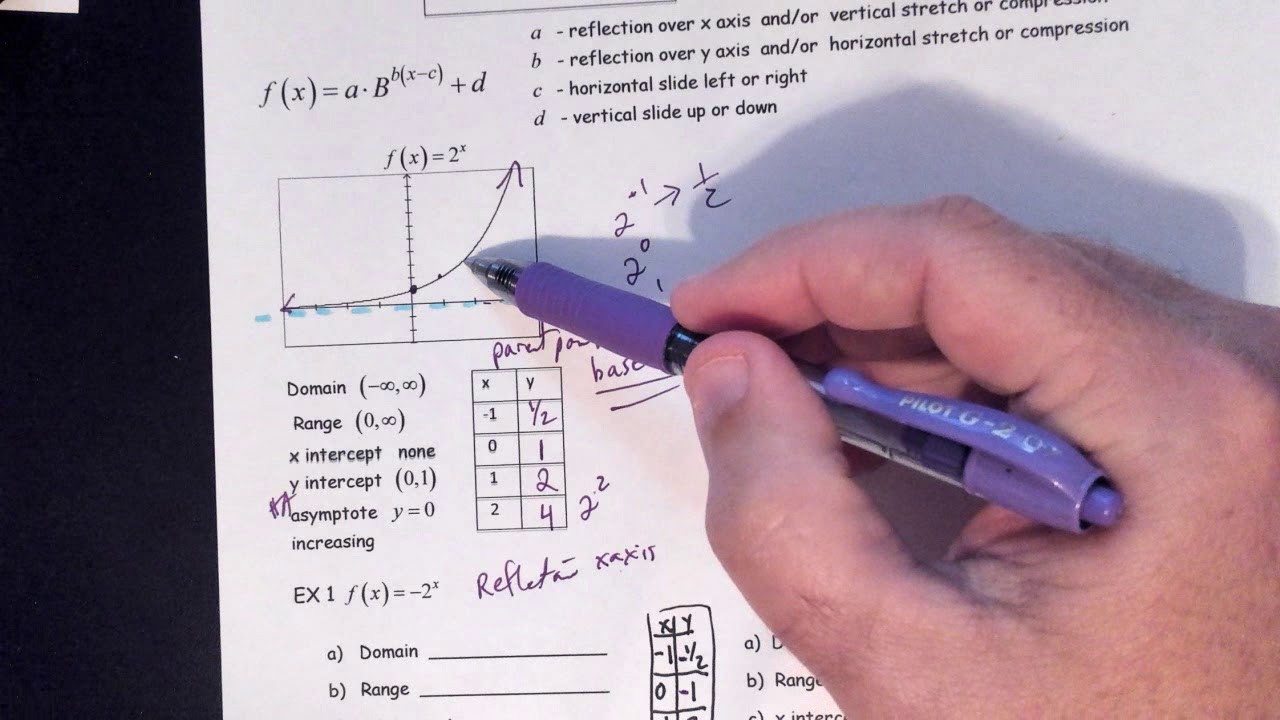 a - reflection over x axis and/or vertical stretch or compression
b - reflection over y axis and/or horizontal stretch or compression
c - horizontal slide left or right
d - vertical slide up or down
f(x)=a·B^{b(x-c)}+d
f(x)=2^x
2^{-1} → 1/2
2^0
1
parent
base
Domain (-∞,∞)
Range (0,∞)
x intercept none
y intercept (0,1)
asymptote y=0
increasing
x y
-1 1/2
0 1
1 2
2 4 2^2
EX 1 f(x)=-2^x
x axis
a) Domain
b) Range
x y
-1 -1/2
0 -1
a)
b) Range
c) x
PILOT G-2